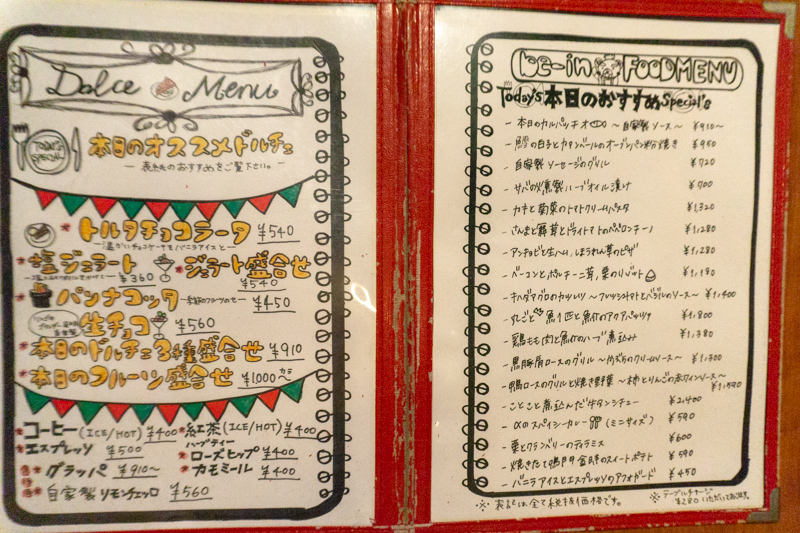 Dolce Menu
TODAY'S SPECIAL
本日のオススメドルチェ
トルタチョコラータ ¥540
―温かいチョコケーキをバニラアイスと―
塩ジェラート ¥360
ジェラート盛合せ ¥540
パンナコッタ ―季節のフルーツのせ― ¥450
生チョコ ¥560
本日のドルチェ3種盛合せ ¥910
本日のフルーツ盛合せ ¥1,000〜
コーヒー (ICE/HOT) ¥400
紅茶 (ICE/HOT) ¥400
エスプレッソ ¥500
ハーブティー
ローズヒップ ¥400
グラッパ ¥910〜
カモミール ¥400
自家製リモンチェッロ ¥560
be-in FOOD MENU
Today's 本日のおすすめ Special's
- 本日のカルパッチオ 〜自家製ソース〜 ¥910〜
- 鱈の白子とカダンバールのオーブンパン粉焼き ¥950
- 自家製ソーセージのグリル ¥720
- サバの燻製ハーブオイル漬け ¥700
- カキと菊菜のトマトクリームパスタ ¥1,320
- さんまと舞茸とドライトマトのペペロンチーノ ¥1,280
- アンチョビと生ハム、ほうれん草のピザ ¥1,280
- ベーコンとポルチーニ茸、栗のリゾット ¥1,180
- キハダマグロのカツレツ 〜フレッシュトマトとバジルのソース〜 ¥1,400
- 丸ごと魚1匹と魚介のアクアパッツァ ¥1,800
- 鶏もも肉と魚介のハーブ煮込み ¥1,380
- 黒豚肩ロースのグリル ¥1,300
- 鴨ロースのグリルと焼き野菜 〜柿とりんごの赤ワインソース〜 ¥1,590
- ことこと煮込んだ牛タンシチュー ¥2,400
- αのスパイシーカレー (ミニサイズ) ¥590
- 栗とクランベリーのティラミス ¥600
- 焼きたて鳴門金時のスイートポテト ¥590
- バニラアイスとエスプレッソのアフォガード ¥450
※表記は全て税抜価格です。
※テーブルチャージ
¥280いただいております。